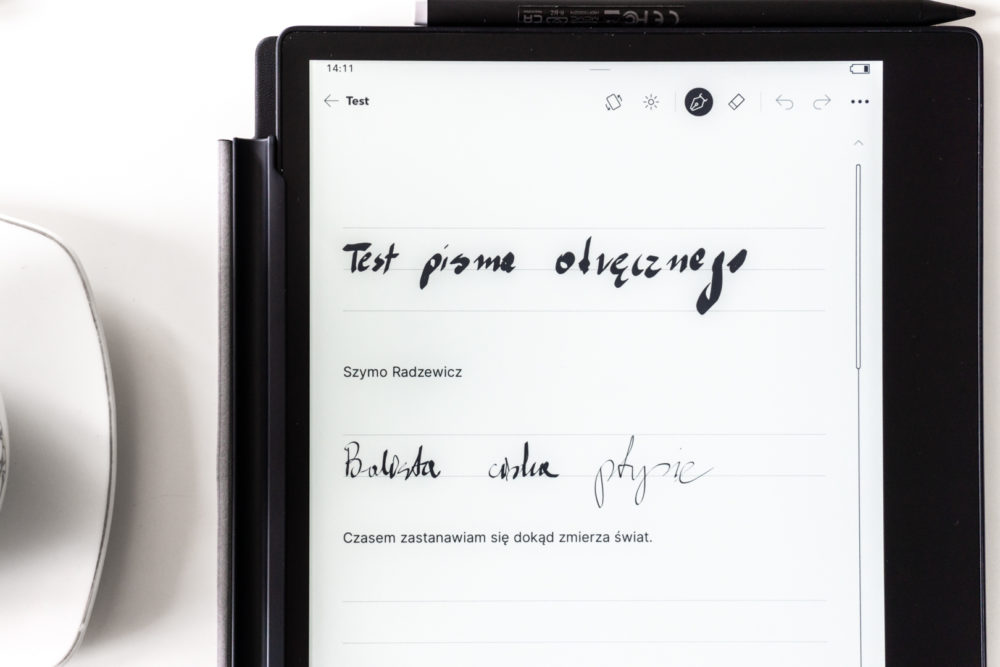 14:11
Test
Test pisma odręcznego
Szymo Radzewicz
ptysie
Czasem zastanawiam się dokąd zmierza świat.